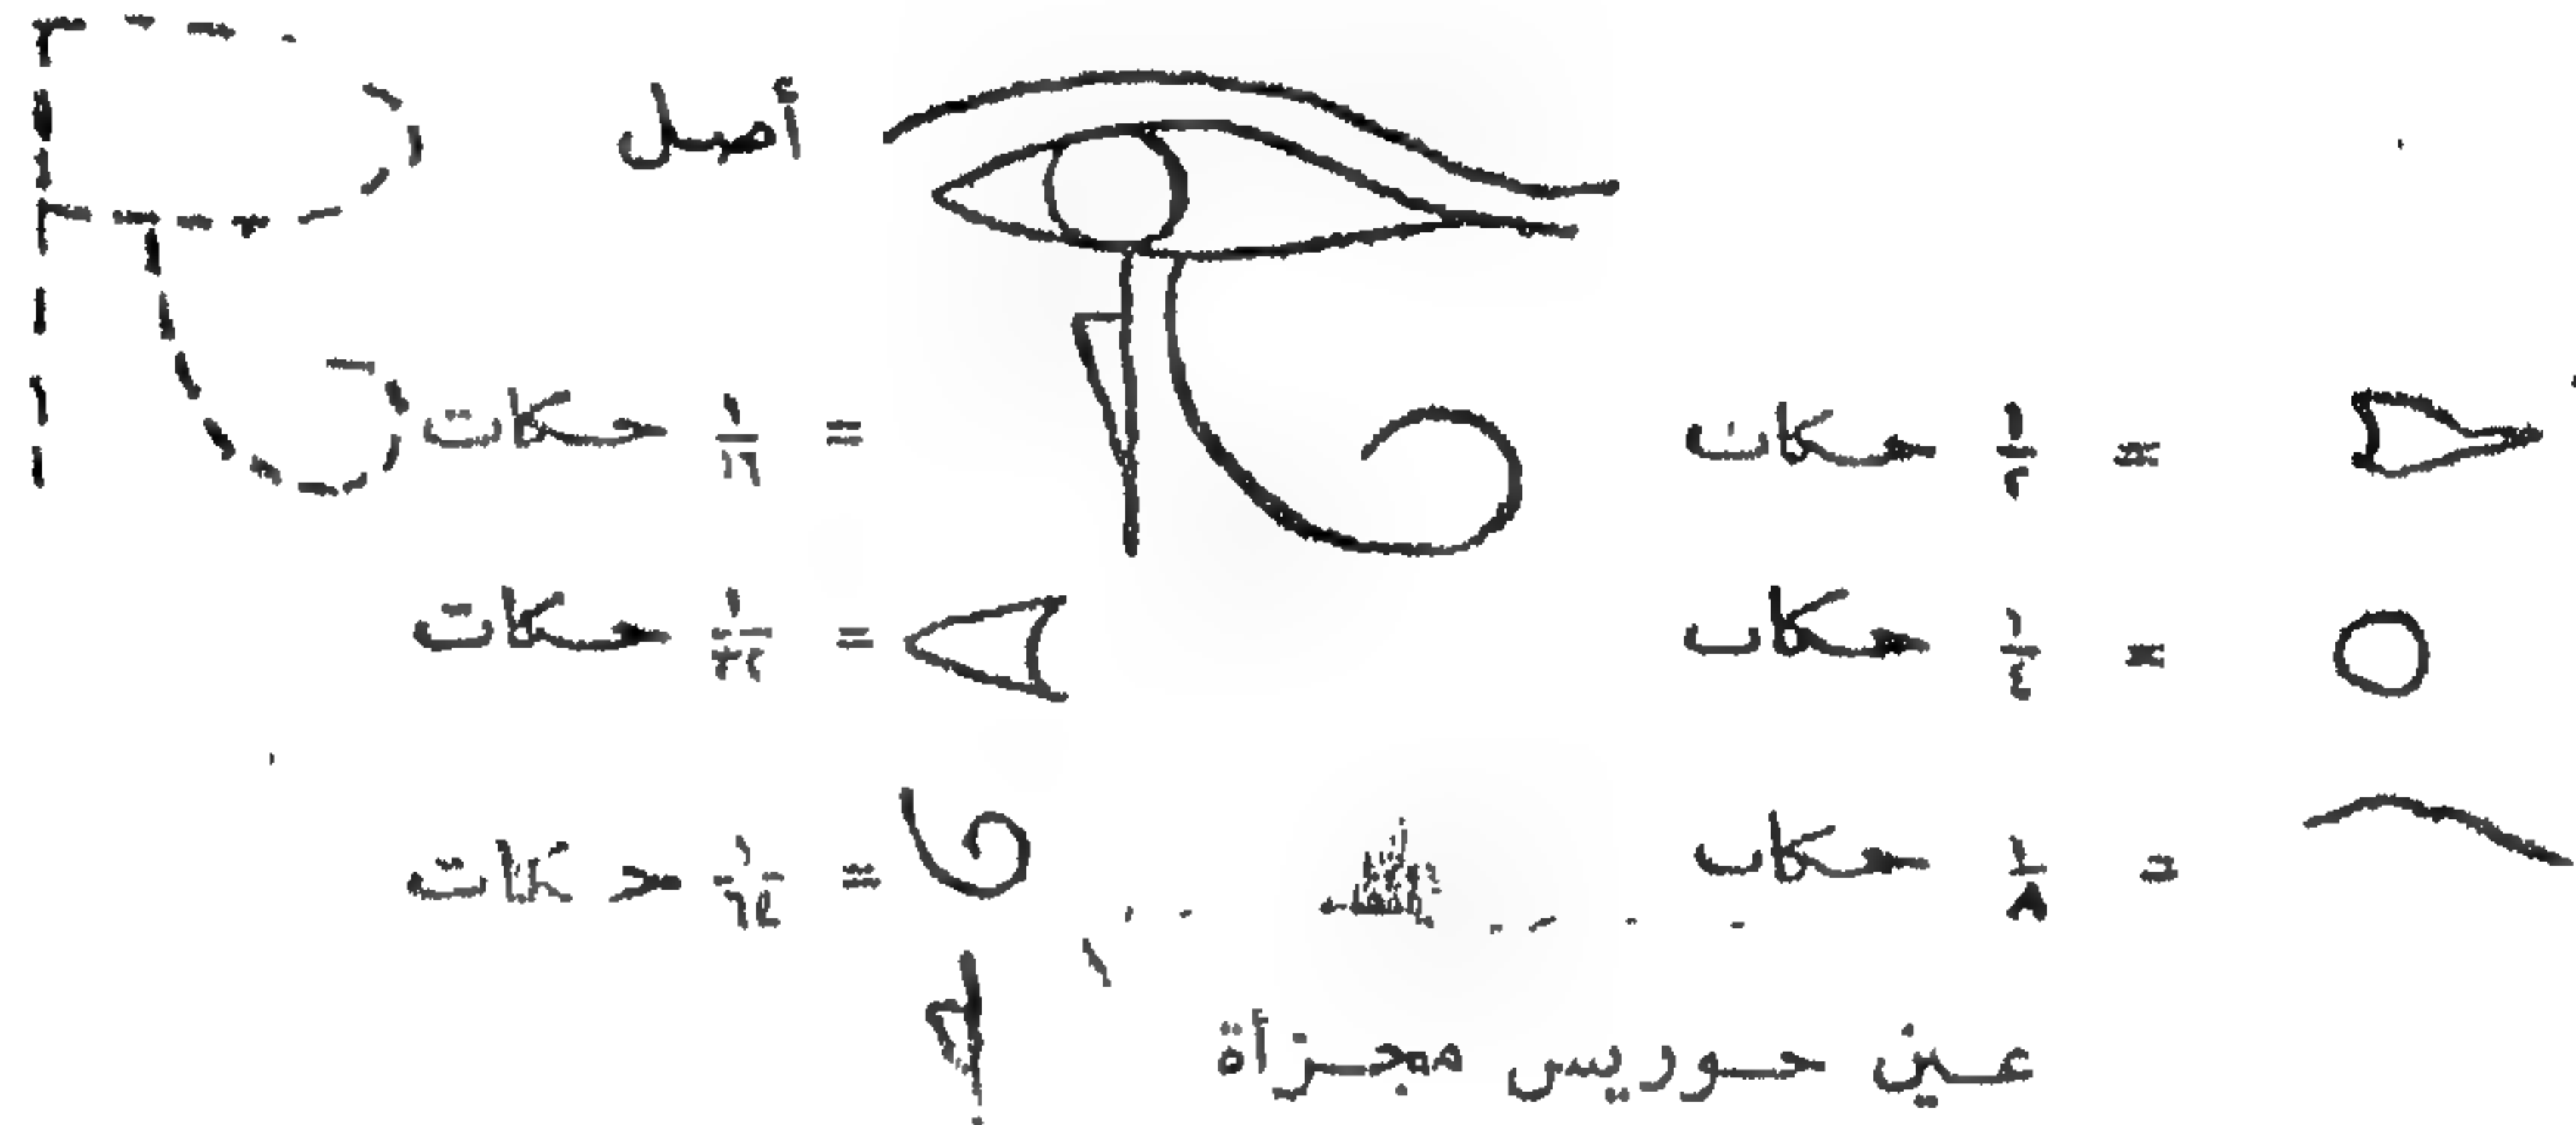 أصل
= ١/٢ حكات
= ١/١٦ حكات
= ١/٤ حكات
= ١/٣٢ حكات
= ١/٨ حكات
= ١/٦٤ حكات
عين حوريس مجزأة